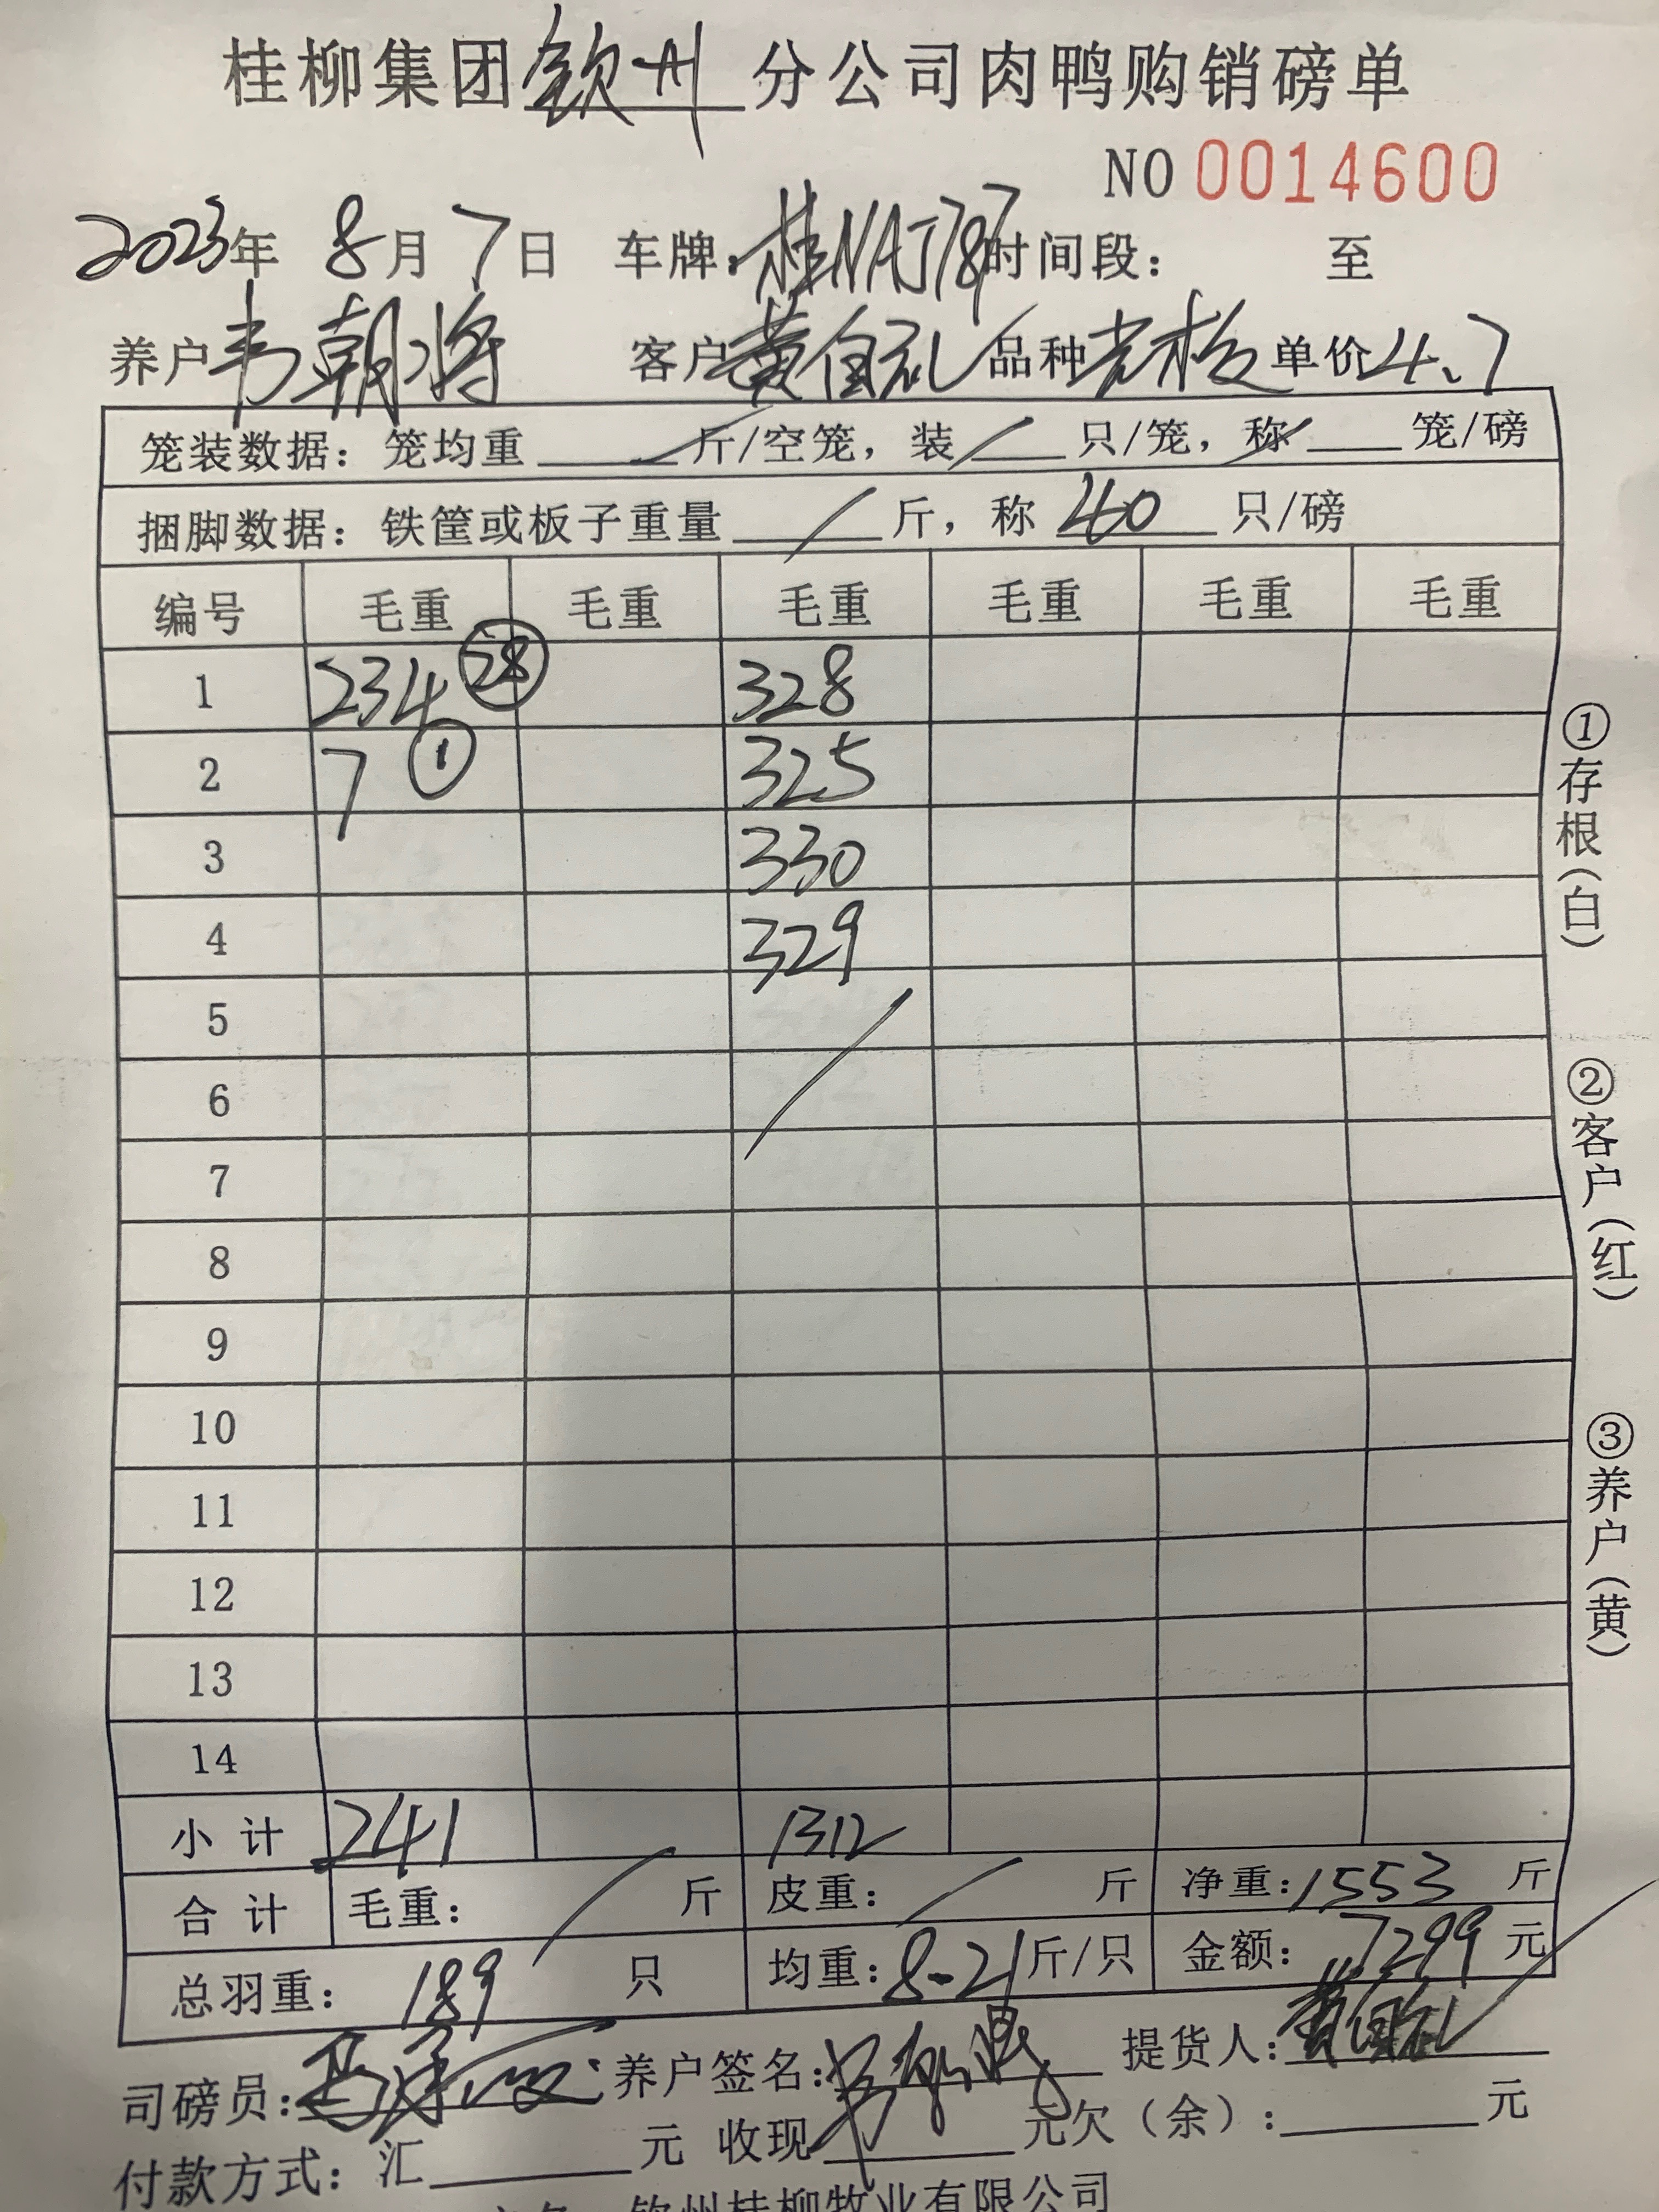 桂柳集团钦州分公司肉鸭购销磅单
NO 0014600
2023年 8月 7日 车牌:桂NAJ787 时间段: 至
养户 韦朝将 客户 黄自礼 品种 单价 4.7
笼装数据:笼均重 / 斤/空笼,装 / 只/笼,称 / 笼/磅
捆脚数据:铁筐或板子重量 / 斤,称 40 只/磅
编号 毛重 毛重 毛重 毛重 毛重 毛重
1 234 28 328
2 7 1 325
3 330
4 329
5
6
7
8
9
10
11
12
13
14
小计 241 1312
合计 毛重: / 斤 皮重: / 斤 净重:1553 斤
总羽重: 189 只 均重:8-21斤/只 金额:7299 元
司磅员: 养户签名: 提货人:黄自礼
付款方式:汇 元 收现 元欠(余): 元
钦州桂柳牧业有限公司
①存根(白)
②客户(红)
③养户(黄)